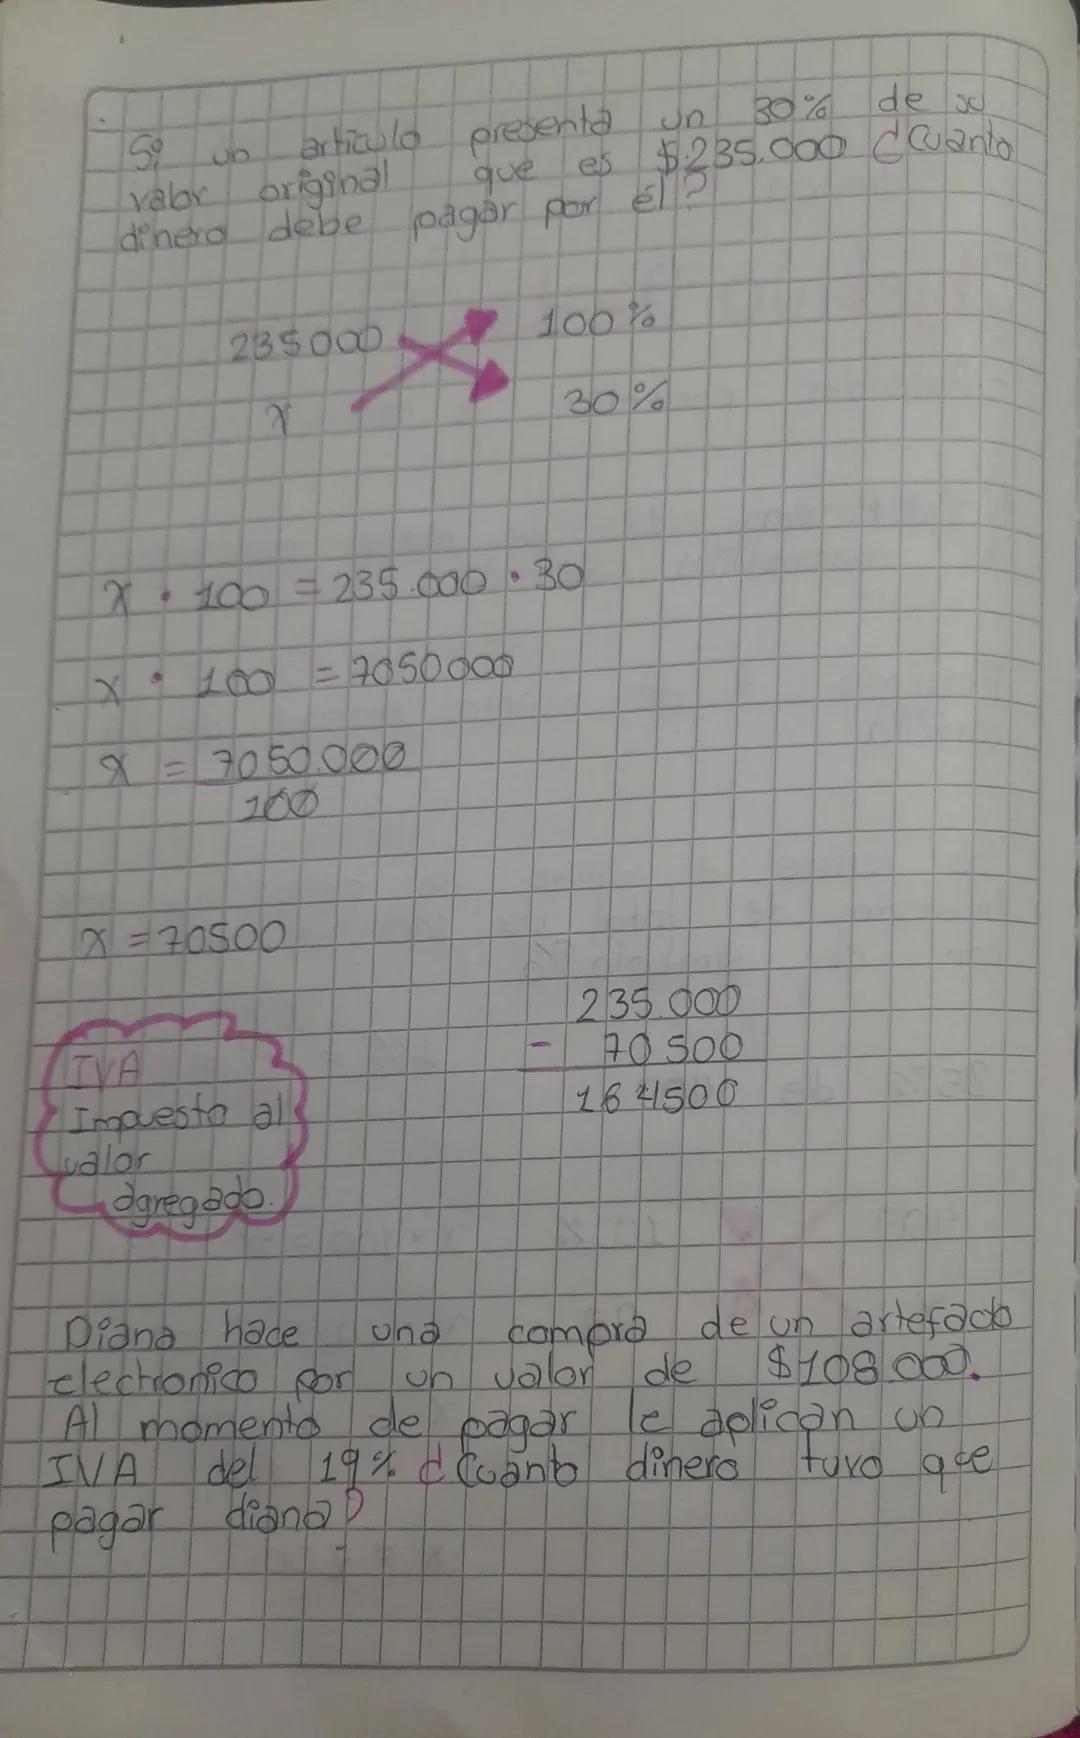 Si un articulo presenta un 30% de su
valor original que es $.235.000 ¿Cuanto
dinero debe pagar por él?
235000 100%
x 30%
x · 100 = 235.000 · 30
x · 100 = 7050000
x = 7050.000
100
x = 70500
235.000
- 70500
164500
IVA
Impuesto al
valor
agregado.
Diana hace una compra de un artefacto
electronico por un valor de $108.000.
Al momento de pagar le aplican un
IVA del 19% ¿Cuanto dinero tuvo que
pagar diana?